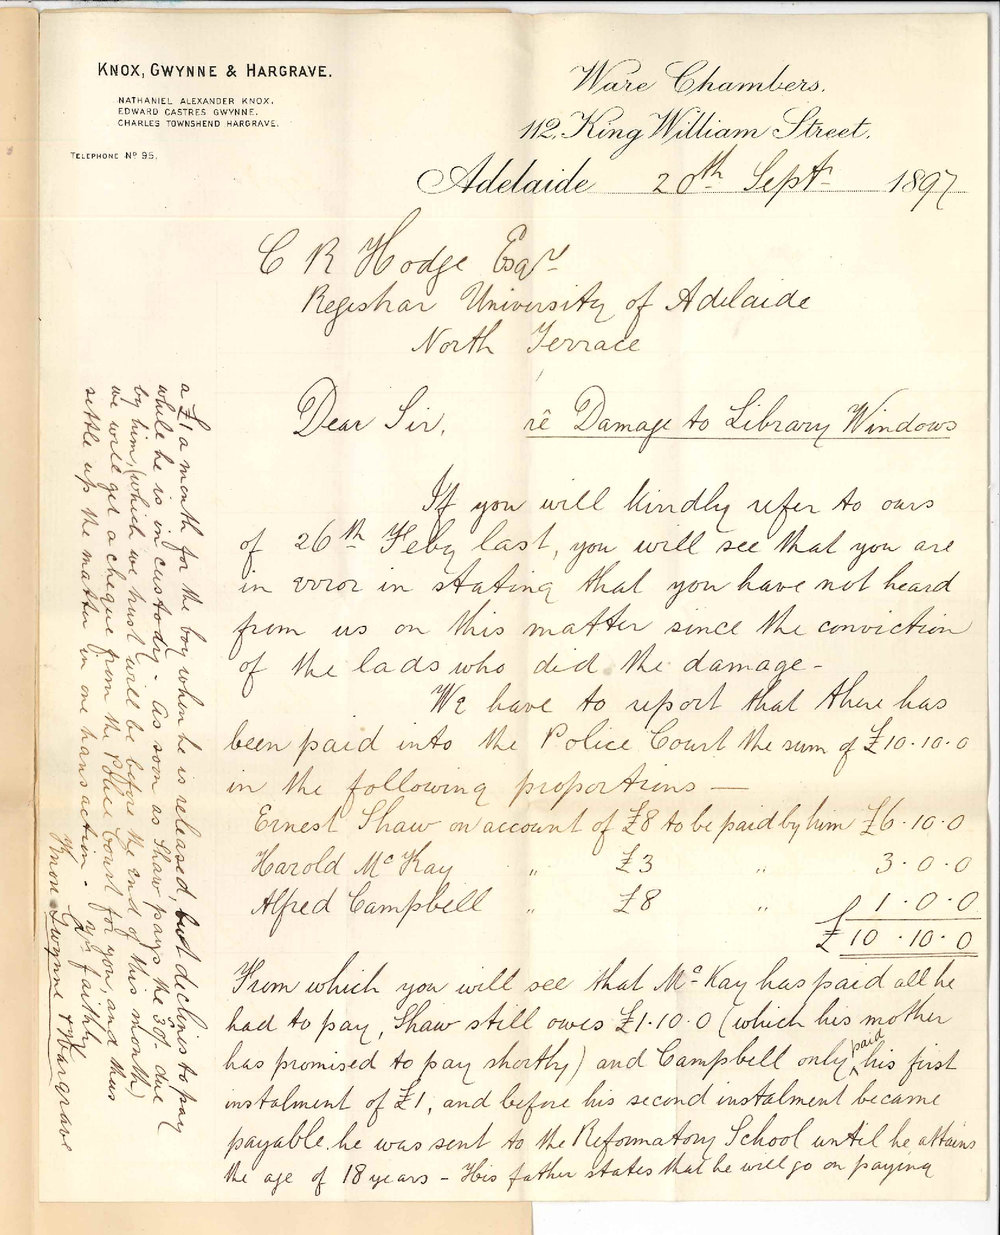 KNOX, GWYNNE & HARGRAVE.
NATHANIEL ALEXANDER KNOX.
EDWARD CASTRES GWYNNE.
CHARLES TOWNSHEND HARGRAVE.
TELEPHONE Nº 95.
Ware Chambers.
112, King William Street.
Adelaide 20th Septr 1897
C R Hodge Esqr
Registrar University of Adelaide
North Terrace
Dear Sir, rê Damage to Library Windows
If you will kindly refer to ours
of 26th Feby last, you will see that you are
in error in stating that you have not heard
from us on this matter since the conviction
of the lads who did the damage -
We have to report that there has
been paid into the Police Court the sum of £10.10.0
in the following proportions —
Ernest Shaw on account of £8 to be paid by him £6.10.0
Harold McKay " £3 " 3.0.0
Alfred Campbell " £8 " 1.0.0
£10.10.0
From which you will see that McKay has paid all he
had to pay, Shaw still owes £1.10.0 (which his mother
has promised to pay shortly) and Campbell only paid his first
instalment of £1, and before his second instalment became
payable he was sent to the Reformatory School until he attains
the age of 18 years - His father states that he will go on paying
a £1 a month for the boy when he is released, but declines to pay
while he is in custody - As soon as Shaw pays the 30/- due
by him, (which we trust will be before the end of this month)
we will get a cheque from the Police Court for you, and thus
settle up the matter in one transaction -
Yrs faithly
Knox Gwynne & Hargrave